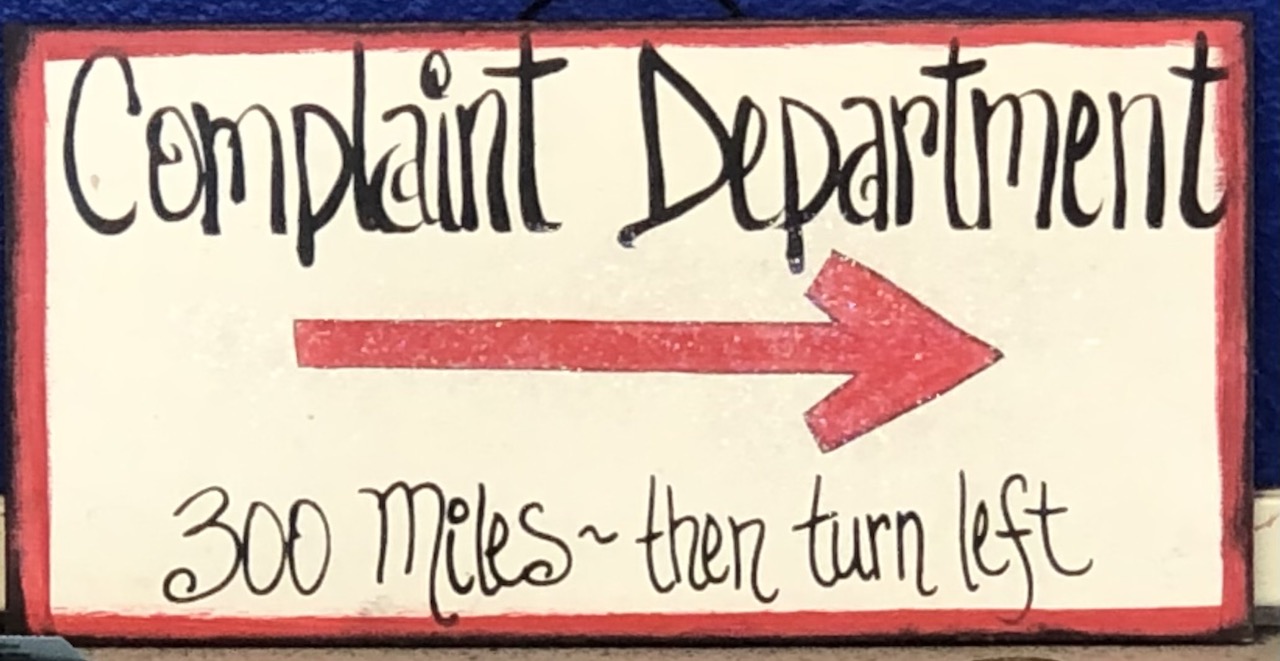 Complaint Department
300 Miles ~ then turn left